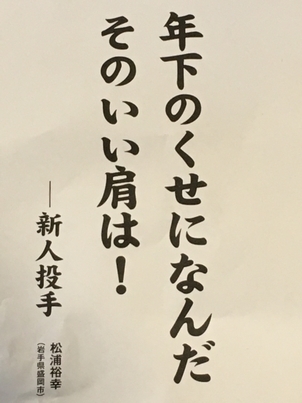 年下のくせになんだ
そのいい肩は！
──新人投手
松浦裕幸
（岩手県盛岡市）